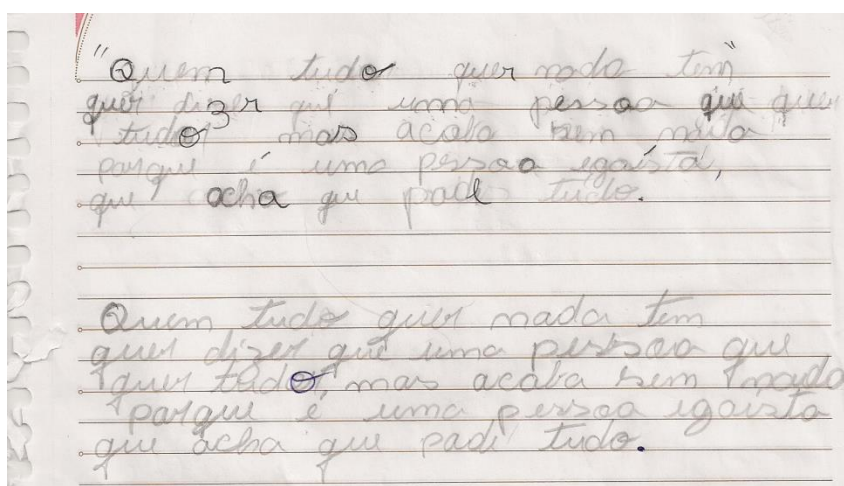 "Quem tudo quer nada tem"
quer dizer que uma pessoa que quer
tudo mas acaba sem nada
porque é uma pessoa egoísta,
que acha que pode tudo.
Quem tudo quer nada tem
quer dizer que uma pessoa que
quer tudo, mas acaba sem nada
porque é uma pessoa egoista
que acha que podi tudo.